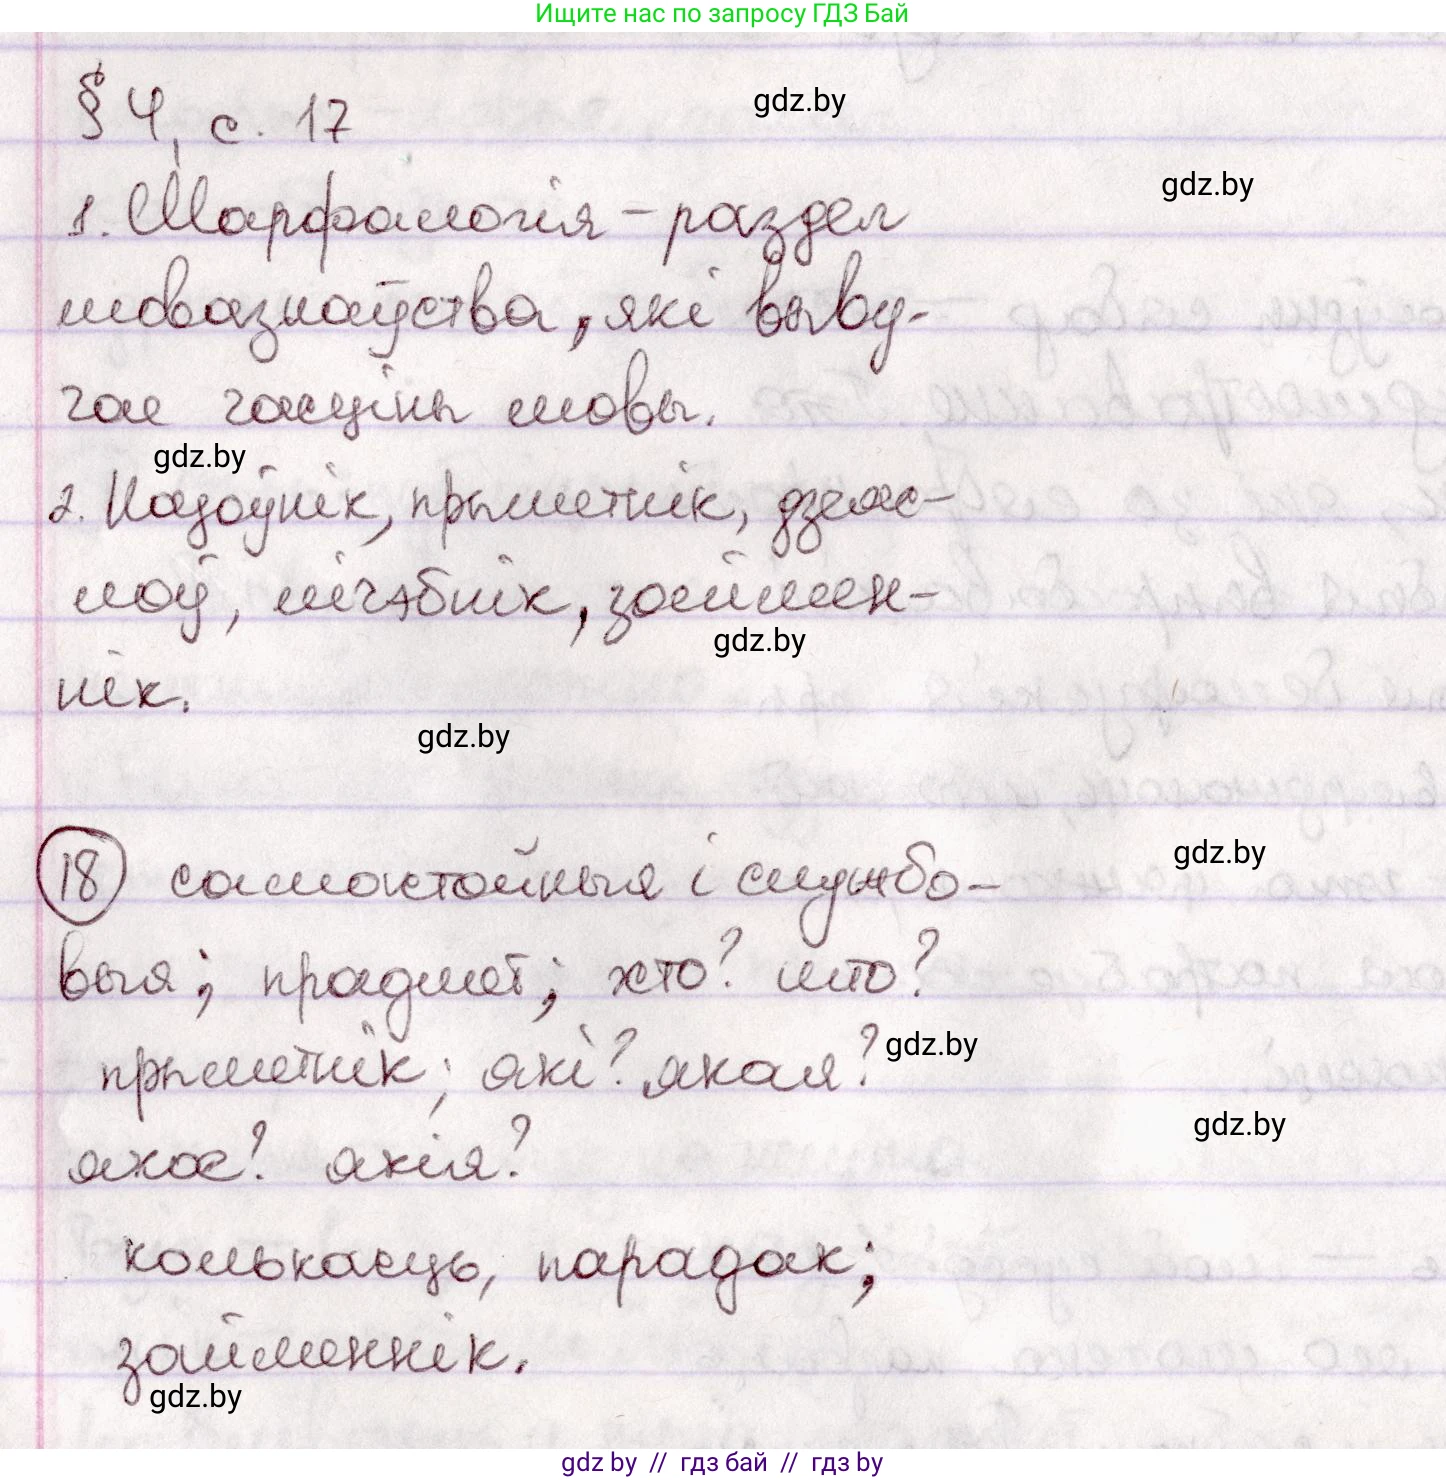 Ищите нас по запросу ГДЗ Бай
§ 4, с. 17
gdz.by
gdz.by
1. Марфалогія – раздел
мовазнаўства, які выву-
чае часціны мовы.
gdz.by
2. Назоўнік, прыметнік, дзеяс-
лоў, лічэбнік, займен-
gdz.by
нік.
gdz.by
gdz.by
18 самастойныя і службо-
выя; прадмет; хто? што?
gdz.by
прыметнік; які? якая?
gdz.by
якое? якія?
колькасць, парадак;
займеннік.
gdz.by
gdz.by // гдз бай // гдз by